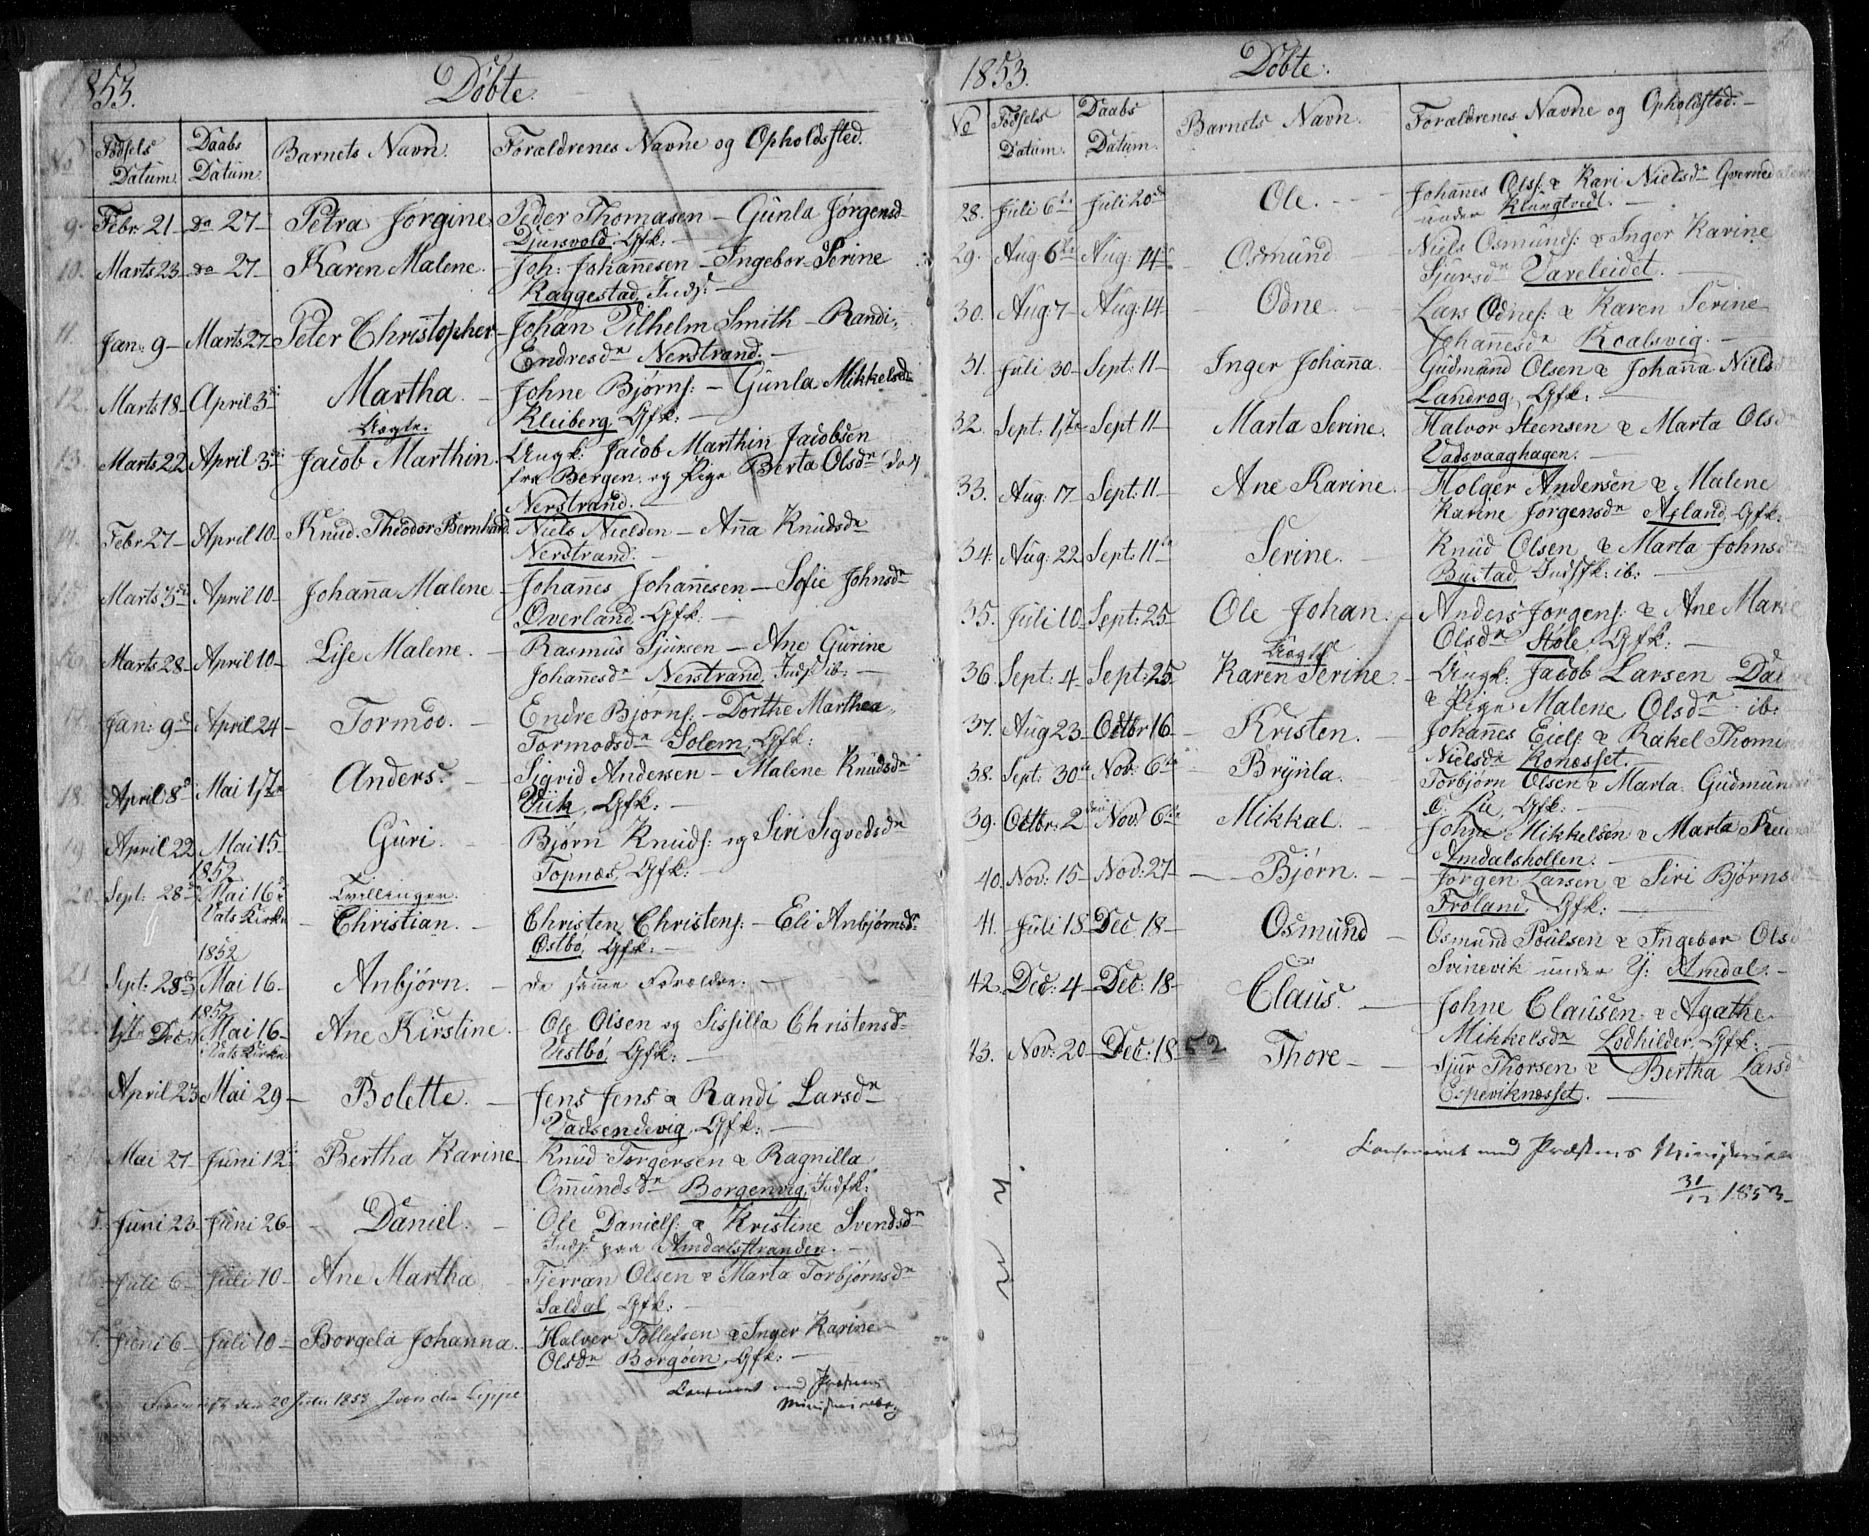 1853.
Döbte.
No Fødsels Datum. Daabs Datum. Barnets Navn. Forældrenes Navne og Opholdssted.
9. Febr. 21 – do 27 – Petra Jørgine Peder Thomasen – Gunla Jørgensd.
Djursvold. Gfk: –
10. Marts 23 – do 27 – Karen Malene. – Joh: Johannesen – Ingebor Serine
Raggestad, Inds: –
11. Jan: 9 – Marts 27 – Peter Christopher – Johan Vilhelm Smith – Randi
Endresdr Nerstrand. –
12. Marts 18 – April 3die Martha. – Johne Bjørns: – Gunla Mikkelsdr
Kleiberg. Gfk: –
Uægte.
13. Marts 22 April 3die Jacob Marthin. Ungk: Jacob Marthin Jacobsen
fra Bergen og Pige Berta Olsdr
Nerstrand. –
14. Febr 27 – April 10 – Knud. Theodor Bernhard. Niels Nielsen – Anna Knudsdr
Nerstrand. –
15. Marts 3die April 10 – Johanna Malene – Johanes Johannesen – Sofie Johnsdr
Øverland. Gfk: –
16. Marts 28 – April 10 – Lise Malene. – Rasmus Sjursen – Ane Gurine
Johanesdr Nerstrand, Inds: ib: –
17. Jan: 9de April 24 – Tormod. – Endre Bjørns: – Dorthe Marthea
Tormodsdr Solem, Gfk:
18. April 8de Mai 1ste Anders. – Sigvid Andersen – Malene Knudsdr
Viik, Gfk: –
19 April 22 Mai 15 – Guri. – Bjørn Knuds: og Siri Sigvedsdr
Topnæs, Gfk: –
1852
20. Sept: 28de Mai 16de Tvillinger.
Vats Kirke – Christian. – Christen Christens: – Eli Anbjørnsdr
Østbø, Gfk: –
1852
21 Sept: 28de Mai 16 – Anbjørn. – de samme Forældre. –
1852
22. 1ste Dec: Mai 16 – Ane Kirstine. – Ole Olsen og Sissilla Christensdr
Vats Kirke Vestbø, Gfk: –
23. April 23 Mai 29 – Bolette. – Jens Jens & Randi Larsdr
Vadsendevig, Gfk: –
24. Mai 27 – Juni 12te Bertha Karine Knud Torgersen & Ragnilla
Omundsdr Borgenvig, Indfk:
25. Juni 23 – Juni 26 – Daniel. – Ole Daniels: & Kristine Svendsdr
Inds: paa Amdalsstranden. –
Juli 6 – Juli 10 – Ane Martha. – Tjerran Olsen & Marta Torbjørnsdr
Sældal, Gfk: –
Juni 6 – Juli 10 – Borgela Johanna. Halver Tollefsen & Inger Karine
Olsdr Borgøen, Gfk: –
den 20 1853
Confereret med Præstens
Ministerialbog
1853.
Döbte.
No Fødsels Datum. Daabs Datum. Barnets Navn. Forældrenes Navne og Opholdssted. –
28. Juli 6te Juli 20de Ole. – Johanes Ols: & Kari Nielsdr
under Klungtvedt. –
29. Aug: 6te Aug: 14de – Osmund – Niels Osmunds: & Inger Karine
Sjursdr Vareleidet. –
30. Aug: 7 – Aug: 14 – – Odne – Lars Odnes: & Karen Serine
Johanesdr Koalsvig. –
31. Juli 30 – Sept: 11 – Inger Johanna. – Gudmund Olsen & Johanna Niels
Landrog, Gfk: –
32. Sept: 1ste Sept 11 – Marta Serine. – Halvor Steensen & Marta Olsdr
Vadsvaaghagen. –
33. Aug: 17 – Sept: 11 – Ane Karine. – Holger Andersen & Malene
Karine Jørgensdr Asland, Gfk:
34. Aug: 22 Sept: 11te Serine. – Knud Olsen & Marta Johns
Bystad, Indsfk: ib: –
35. Juli 10 – Sept: 25 – Ole Johan. – Anders Jørgens: & Ane Marie
Olsdr Støle, Gfk: –
Uægte
36. Sept: 4 – Sept: 25 – Karen Serine. – Ungk: Jacob Larsen
& Pige Malene Olsdr ib:
37. Aug 23 – Octbr 16 – Kristen. – Johannes Eiels: & Rakel
Nielsdr Konæsset. –
38. Sept: 30te Nov: 6te Brynla. – Torbjørn Olsen & Marta Gudmunds
Lie, Gfk: –
39. Octbr: 2den Nov: 6te Mikkal. – Johne Mikkelsen & Marta
Amdalshollen. –
40. Nov: 15 – Nov: 27 – – Bjørn. – Jørgen Larsen & Siri Bjørns
Frøland, Gfk: –
41. Juli 18 – Dec: 18 – Osmund – Osmund Poulsen & Ingebor Ols
Svinevik under Y: Amdal. –
42. Dec: 4 – Dec: 18 – Claus. – Johne Clausen & Agathe
Mikkelsdr Lodhilder, Gfk: –
43. Nov: 20 – Dec: 18 – 52 Thore – – Sjur Thorsen & Bertha Larsd
Espeviknæsset. –
Confereret med Præstens Ministerial
31/12 1853 –